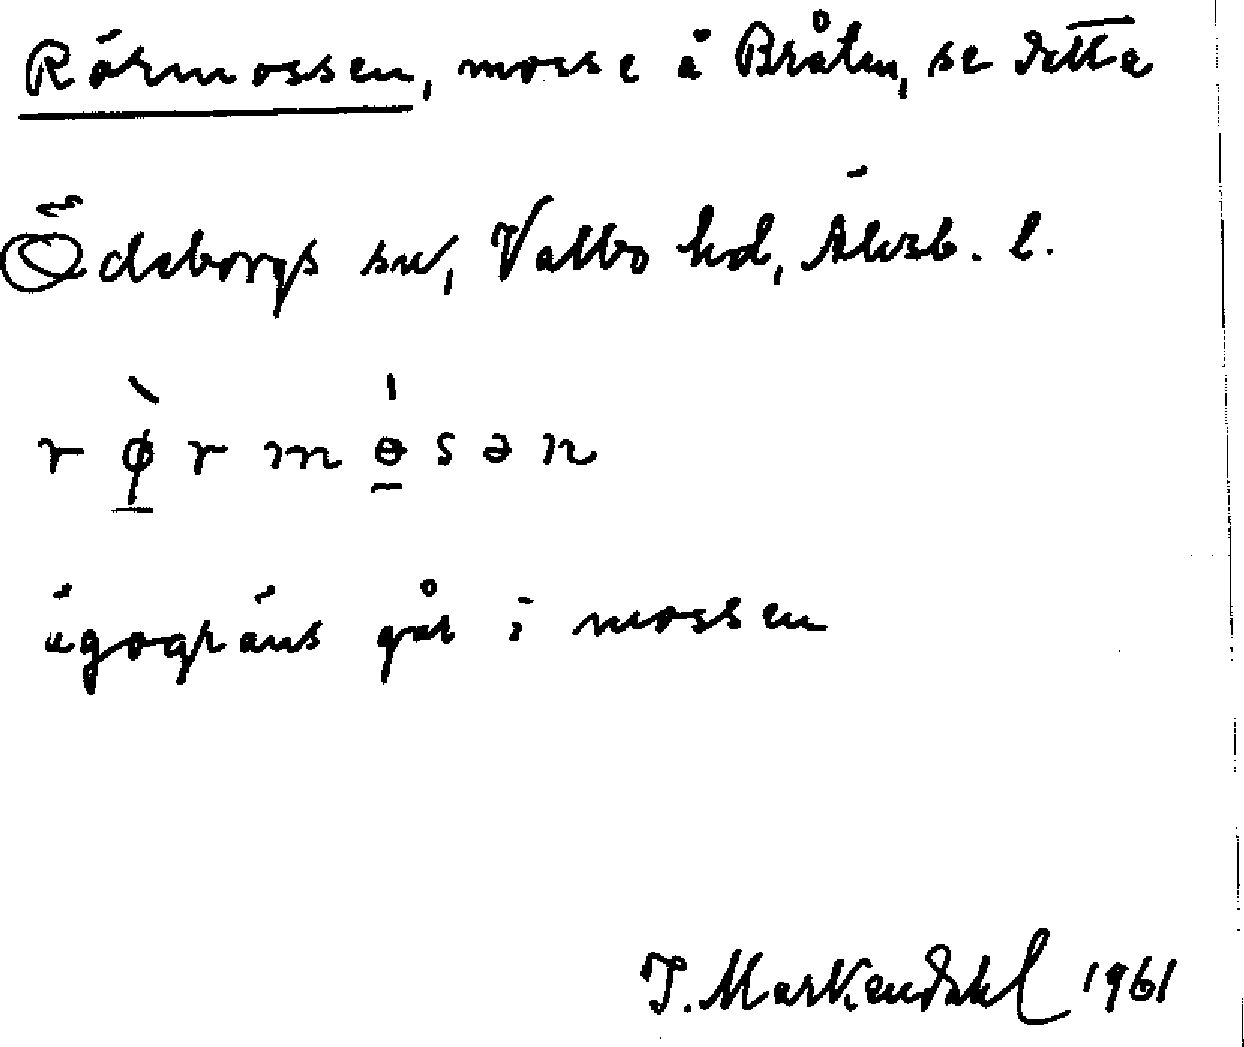 Rörmossen, mosse å Bråten, se detta
Ödeborgs sn, Valbo hd, Älvsb. l.
rø̠̀rmɵ̠́sən
ägogräns går i mossen
J. Markendahl 1961